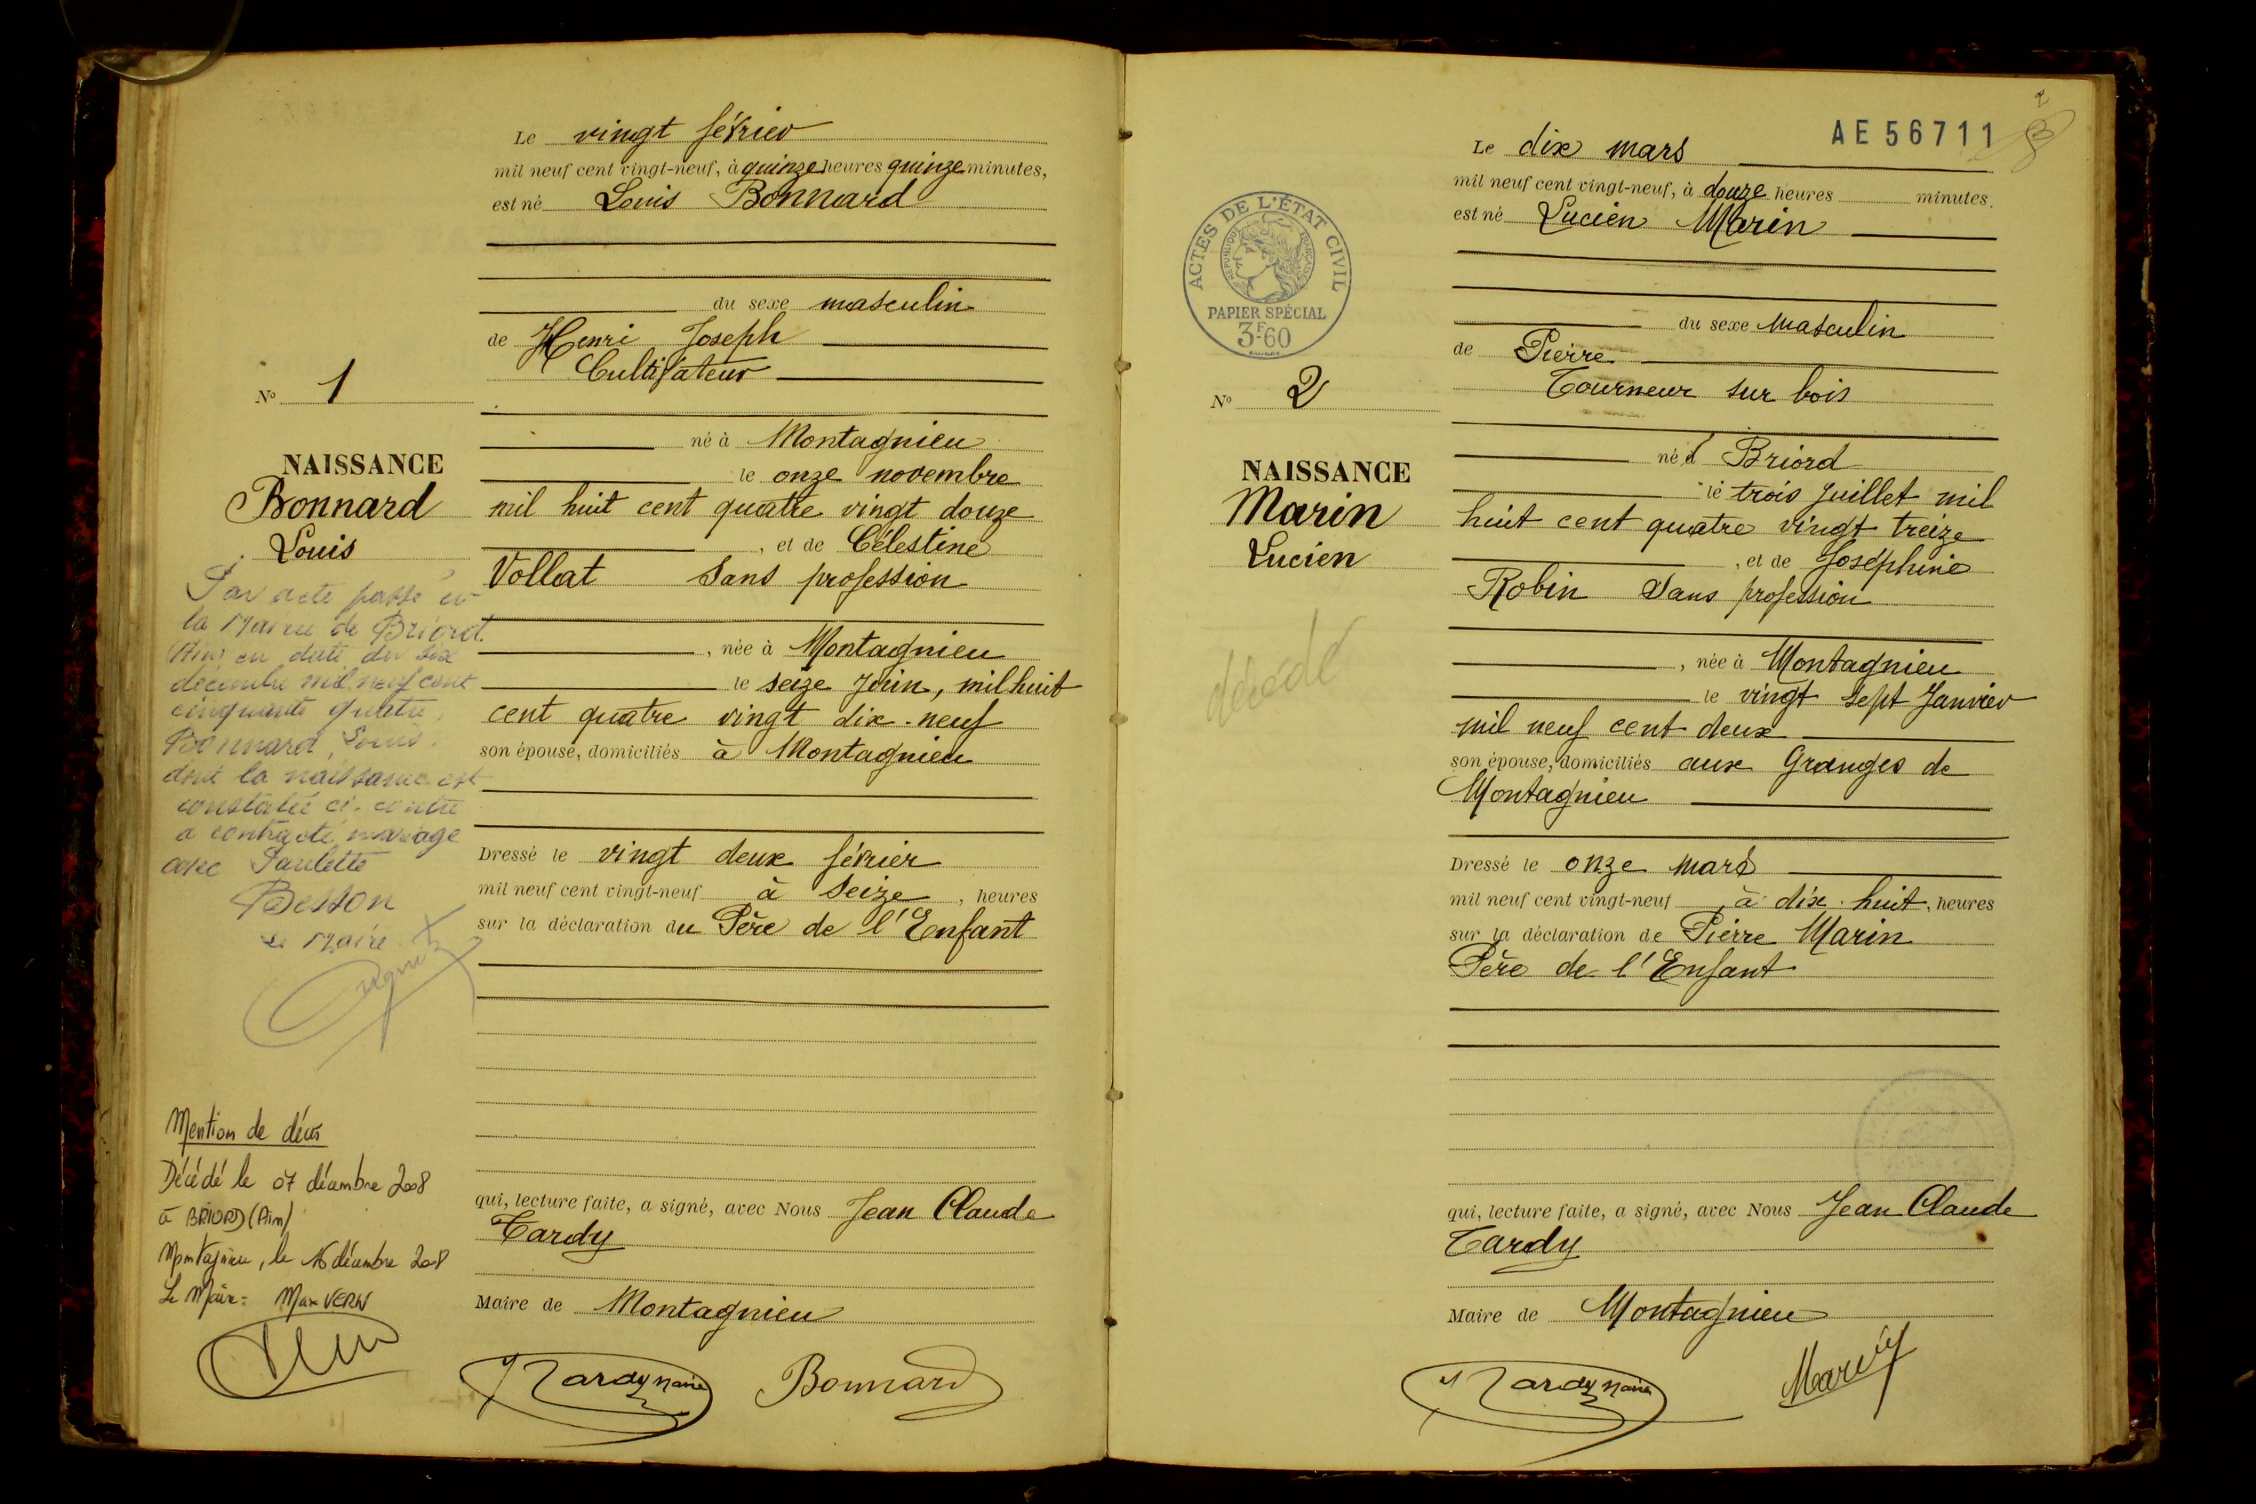 Le vingt février
mil neuf cent vingt-neuf, à quinze heures quinze minutes,
est né Louis Bonnard
du sexe masculin
de Henri Joseph
Cultivateur
né à Montagnieu
le onze novembre
mil huit cent quatre vingt douze
, et de Célestine
Vollat Sans profession
, née à Montagnieu
le seize Juin, mil huit
cent quatre vingt dix-neuf
son épouse, domiciliés à Montagnieu
Dressé le vingt deux février
mil neuf cent vingt-neuf à seize, heures
sur la déclaration du Père de l'Enfant
qui, lecture faite, a signé, avec Nous Jean Claude
Tardy
Maire de Montagnieu
Tardy Maire Bonnard
N° 1
NAISSANCE
Bonnard
Louis
Par acte passé en
la Mairie de Briord
(Ain) en date du six
décembre mil neuf cent
cinquante quatre,
Bonnard, Louis.
dont la naissance est
constatée ci-contre
a contracté mariage
avec Paulette
Besson
Le Maire
Mention de décès
Décédé le 07 décembre 2008
à BRIORD (Ain)
Montagnieu, le 16 décembre 2008
Le Maire: Max VERN
AE56711
2
Le dix mars
mil neuf cent vingt-neuf, à douze heures minutes.
est né Lucien Marin
du sexe masculin
de Pierre
Tourneur sur bois
né à Briord
le trois Juillet mil
huit cent quatre vingt treize
, et de Joséphine
Robin Sans profession
, née à Montagnieu
le vingt sept Janvier
mil neuf cent deux
son épouse, domiciliés aux Granges de
Montagnieu
Dressé le onze mars
mil neuf cent vingt-neuf, à dix-huit, heures
sur la déclaration de Pierre Marin
Père de l'Enfant
qui, lecture faite, a signé, avec Nous Jean Claude
Tardy
Maire de Montagnieu
Tardy Maire Marin
ACTES DE L'ÉTAT CIVIL
RÉPUBLIQUE FRANÇAISE
PAPIER SPÉCIAL
3F.60
N° 2
NAISSANCE
Marin
Lucien
décédé